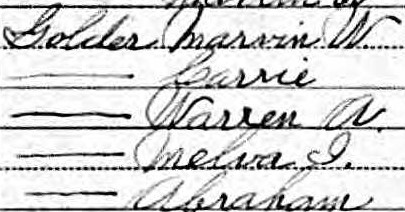 Golder Marvin W
— Carrie
— Warren A.
— Melva I.
— Abraham